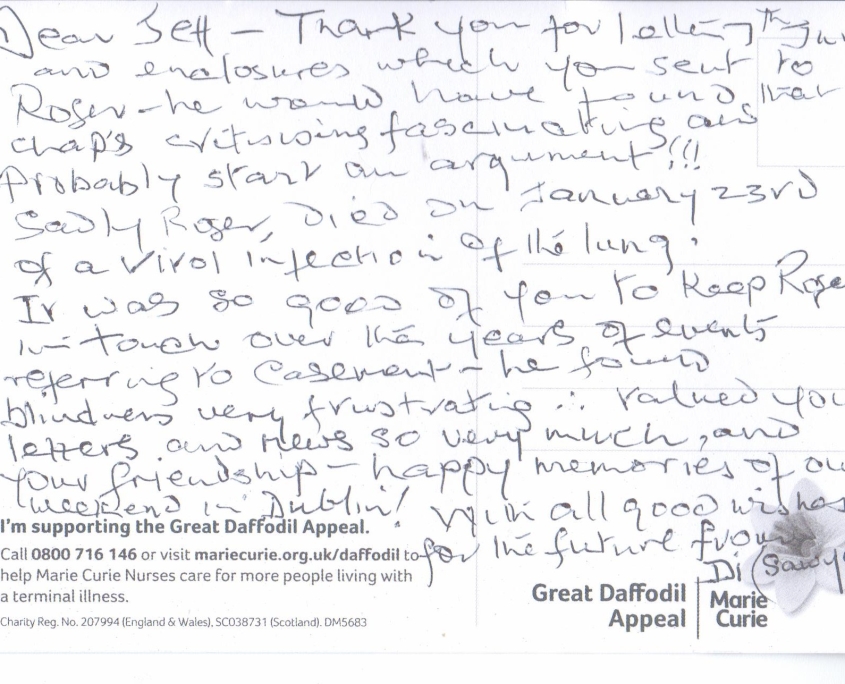 Dear Jeff – Thank you for letting
and enclosures which you sent to
Roger – he would have found that
chap's critisising fascinating and
probably start an argument!!!
Sadly Roger, Died on January 23rd
of a Viral Infection of the lung.
It was so good of you to keep Roge
in – touch over the years of events
referring to Casement – he found
blindness very frustrating ∴ valued you
letters and news so very much, and
your friendship – happy memories of ou
weekend in Dublin! With all good wishes
for the future from
Di (Sawy
I'm supporting the Great Daffodil Appeal.
Call 0800 716 146 or visit mariecurie.org.uk/daffodil to
help Marie Curie Nurses care for more people living with
a terminal illness.
Charity Reg. No. 207994 (England & Wales), SC038731 (Scotland). DM5683
Great Daffodil
Appeal
Marie
Curie